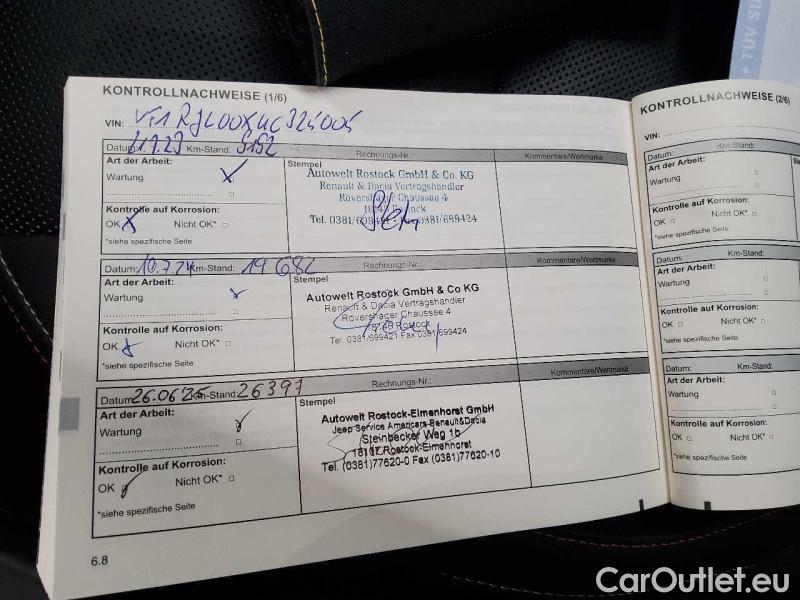 KONTROLLNACHWEISE (1/6)
VIN: VF1RJL00X4C325005
Datum: 11.7.23 Km-Stand: 9152 Rechnungs-Nr.: Kommentare/Wertmarke
Art der Arbeit: Stempel
Wartung
Autowelt Rostock GmbH & Co. KG
Renault & Dacia Vertragshändler
Rövershäger Chaussee 4
Rostock
Tel. 0381/699421 · Fax 0381/699424
Kontrolle auf Korrosion:
OK Nicht OK*
*siehe spezifische Seite
Datum: 10.7.24 Km-Stand: 19682 Rechnungs-Nr.: Kommentare/Wertmarke
Art der Arbeit: Stempel
Wartung
Autowelt Rostock GmbH & Co KG
Renault & Dacia Vertragshändler
Rövershäger Chaussee 4
18146 Rostock
Tel. 0381/699421 Fax 0381/699424
Kontrolle auf Korrosion:
OK Nicht OK*
*siehe spezifische Seite
Datum: 26.06.25 Km-Stand: 26397 Rechnungs-Nr.: Kommentare/Wertmarke
Art der Arbeit: Stempel
Wartung
Autowelt Rostock-Elmenhorst GmbH
Jeep Service American Renault&Dacia
Steinbecker Weg 1b
18107 Rostock-Elmenhorst
Tel. (0381)77620-0 Fax (0381)77620-10
Kontrolle auf Korrosion:
OK Nicht OK*
*siehe spezifische Seite
6.8
KONTROLLNACHWEISE (2/6)
VIN:
Datum: Km-Stand:
Art der Arbeit:
Wartung
Kontrolle auf Korrosion:
OK Nicht OK*
*siehe spezifische Seite
Datum: Km-Stand:
Art der Arbeit:
Wartung
Kontrolle auf Korrosion:
OK Nicht OK*
*siehe spezifische Seite
Datum: Km-Stand:
Art der Arbeit:
Wartung
Kontrolle auf Korrosion:
OK Nicht OK*
*siehe spezifische Seite
TÜV
CarOutlet.eu